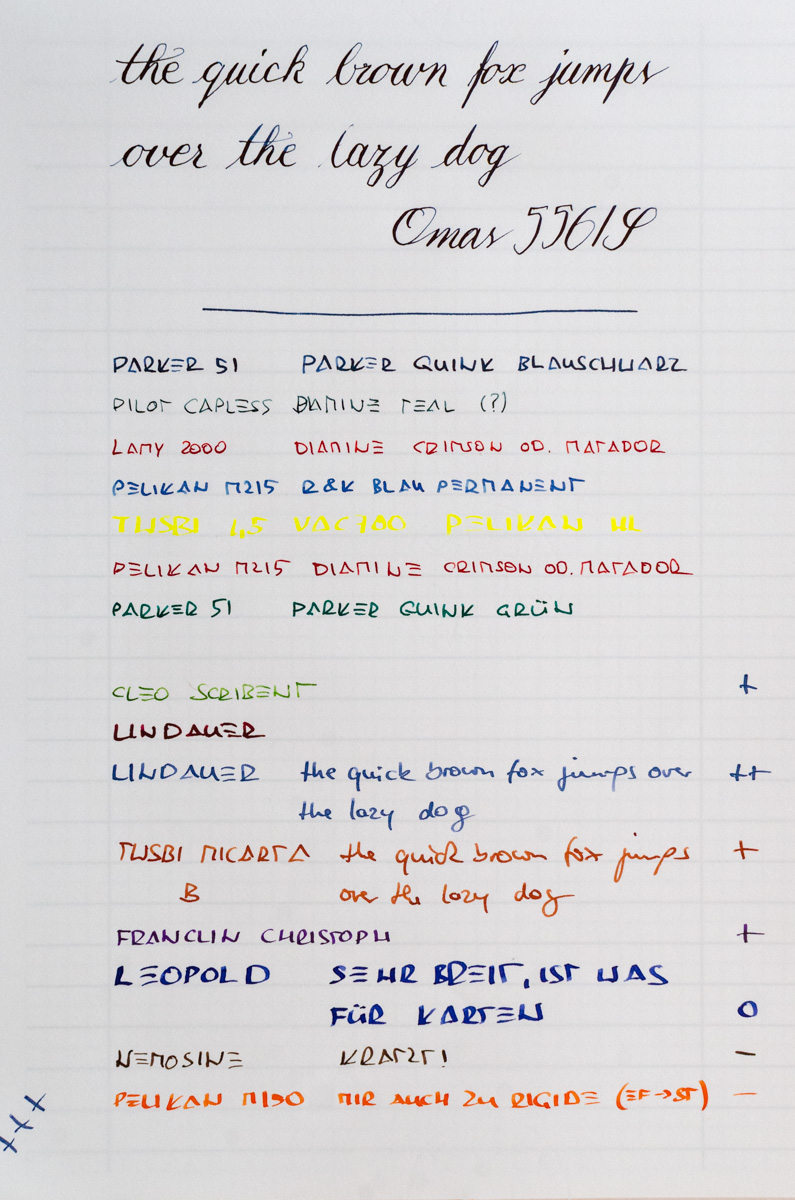 the quick brown fox jumps
over the lazy dog
Omas 556/S
PARKER 51 PARKER QUINK BLAUSCHWARZ
PILOT CAPLESS DIAMINE TEAL (?)
LAMY 2000 DIAMINE CRIMSON OD. MATADOR
PELIKAN M215 R&K BLAU PERMANENT
TWSBI 1,5 VAC700 PELIKAN HL
PELIKAN M215 DIAMINE CRIMSON OD. MATADOR
PARKER 51 PARKER QUINK GRÜN
CLEO SCRIBENT +
LINDAUER
LINDAUER the quick brown fox jumps over ++
the lazy dog
TWSBI MICARTA the quick brown fox jumps +
B over the lazy dog
FRANCLIN CHRISTOPH +
LEOPOLD SEHR BREIT, IST WAS
FÜR KARTEN O
NEMOSINE KRATZT! –
PELIKAN M150 MIR AUCH ZU RIGIDE (EF→ST) –
+++